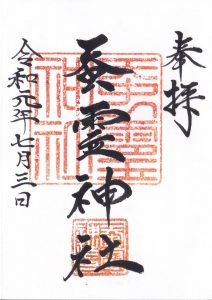 奉拝
蚕霊神社
令和元年七月三日